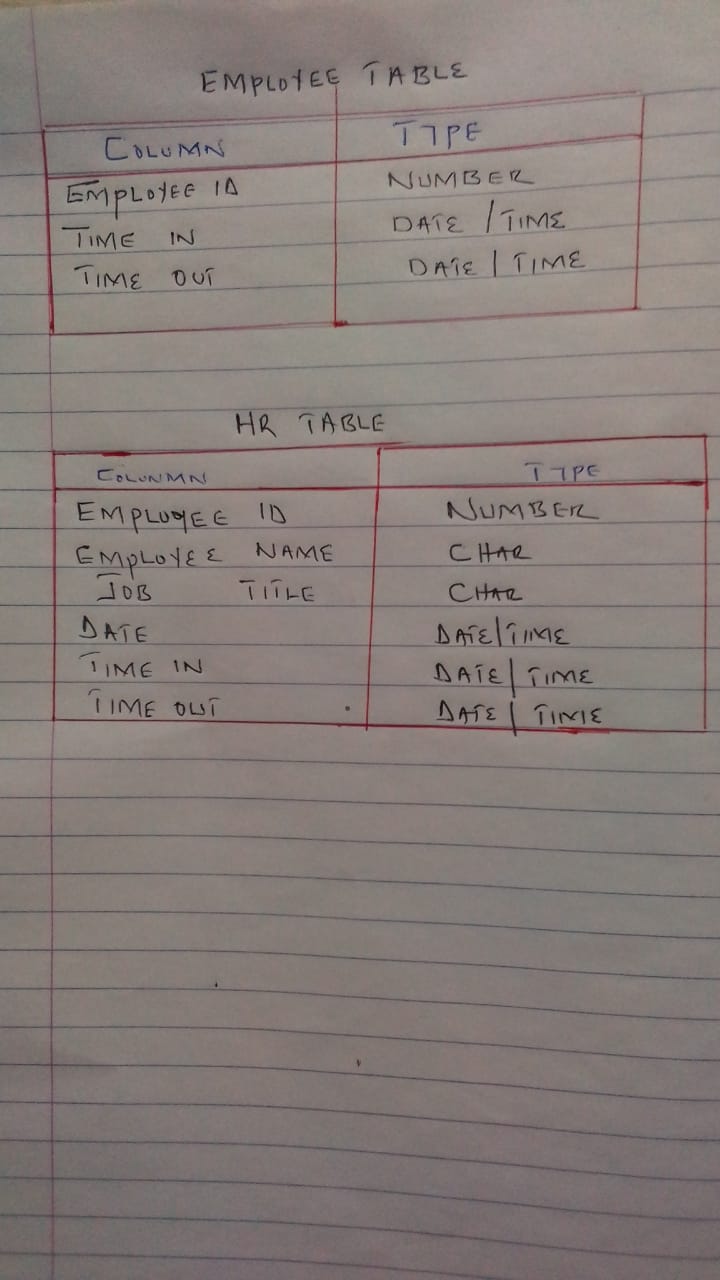 EMPLOYEE TABLE
COLUMN TYPE
EMPLOYEE ID NUMBER
TIME IN DATE / TIME
TIME OUT DATE / TIME
HR TABLE
COLUNMN TYPE
EMPLOYEE ID NUMBER
EMPLOYEE NAME CHAR
JOB TITLE CHAR
DATE DATE/TIME
TIME IN DATE / TIME
TIME OUT DATE / TIME